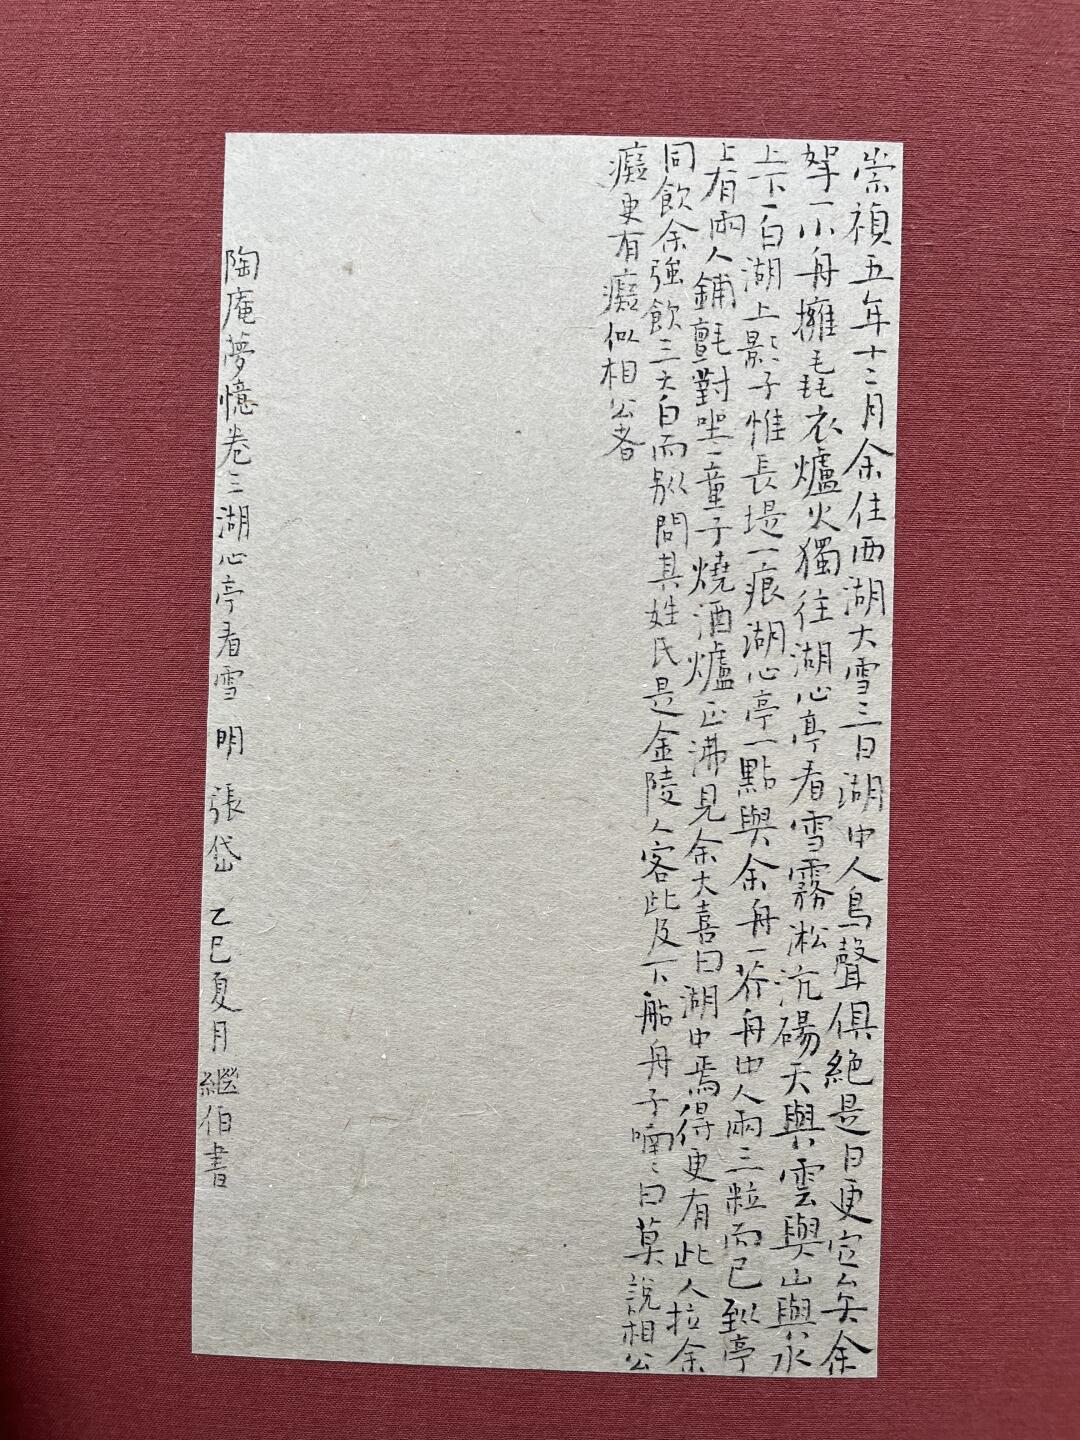 崇禎五年十二月余住西湖大雪三日湖中人鳥聲俱絕是日更定矣余
拏一小舟擁毳衣爐火獨往湖心亭看雪霧淞沆碭天與雲與山與水
上下一白湖上影子惟長堤一痕湖心亭一點與余舟一芥舟中人兩三粒而已到亭
上有兩人鋪氈對坐一童子燒酒爐正沸見余大喜曰湖中焉得更有此人拉余
同飲余強飲三大白而別問其姓氏是金陵人客此及下船舟子喃〻曰莫說相公
癡更有癡似相公者
陶庵夢憶卷三湖心亭看雪 明 張岱 乙巳夏月繼伯書